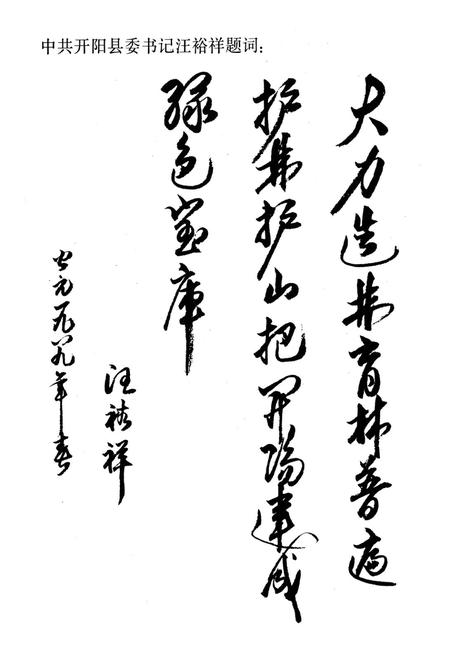 中共开阳县委书记汪裕祥题词：
大力造林育林普遍
护林护山把开阳建成
绿色宝库
汪裕祥
公元一九八九年春